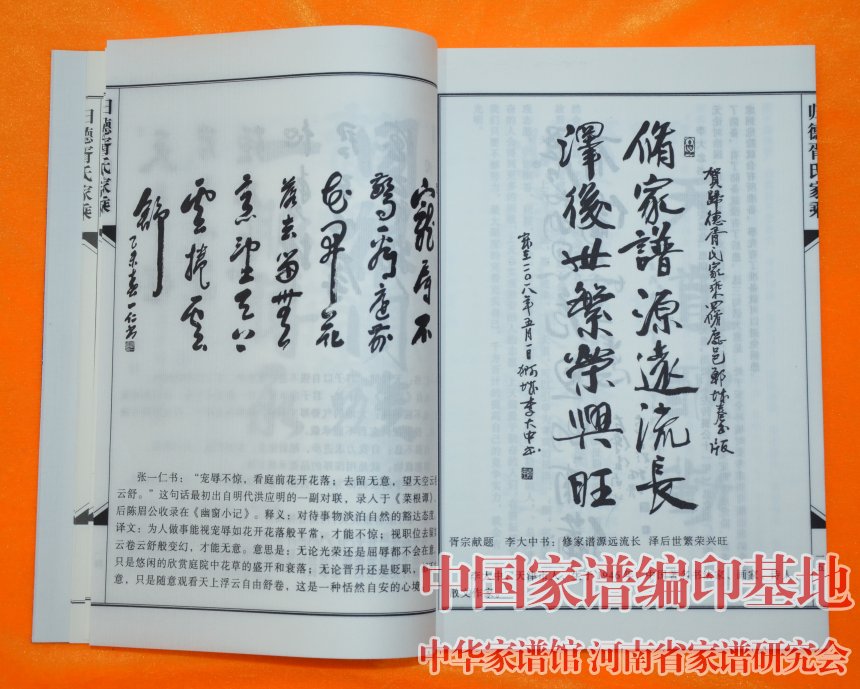 归德胥氏家乘
曰德胥氏家乘
寵辱不
驚看庭前
花開花
落去留無
意望天上
雲捲雲
舒
乙未春一仁书
张一仁书：“宠辱不惊，看庭前花开花落；去留无意，望天空云
云舒。”这句话最初出自明代洪应明的一副对联，录人于《菜根谭》，
后陈眉公收录在《幽窗小记》。释义：对待事物淡泊自然的豁达态度
译文：为人做事能视宠辱如花开花落般平常，才能不惊；视职位去留
云卷云舒般变幻，才能无意。意思是：无论光荣还是屈辱都不会在意，
只是悠闲的欣赏庭院中花草的盛开和衰落；无论晋升还是贬职，
意，只是随意观看天上浮云自由舒卷，这是一种恬然自安的心境
归德胥氏家乘
賀歸德胥氏家乘 邑鄲城 版
脩家譜源遠流長
澤後世繁榮興旺
二〇一八年五月一日 李大中书
胥宗献题 李大中书：修家谱源远流长 泽后世繁荣兴旺
中国家谱编印基地
中华家谱馆 河南省家谱研究会